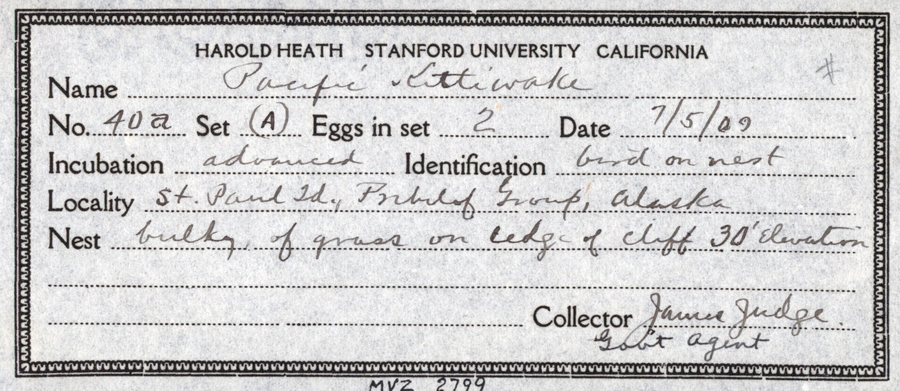 HAROLD HEATH STANFORD UNIVERSITY CALIFORNIA
Name Pacific Kittiwake #
No. 40a Set (A) Eggs in set 2 Date 7/5/09
Incubation advanced Identification bird on nest
Locality St. Paul Id., Pribilof Group, Alaska
Nest bulky, of grass on ledge of cliff 30' Elevation
Collector James Judge.
Gov't Agent
MVZ 2799